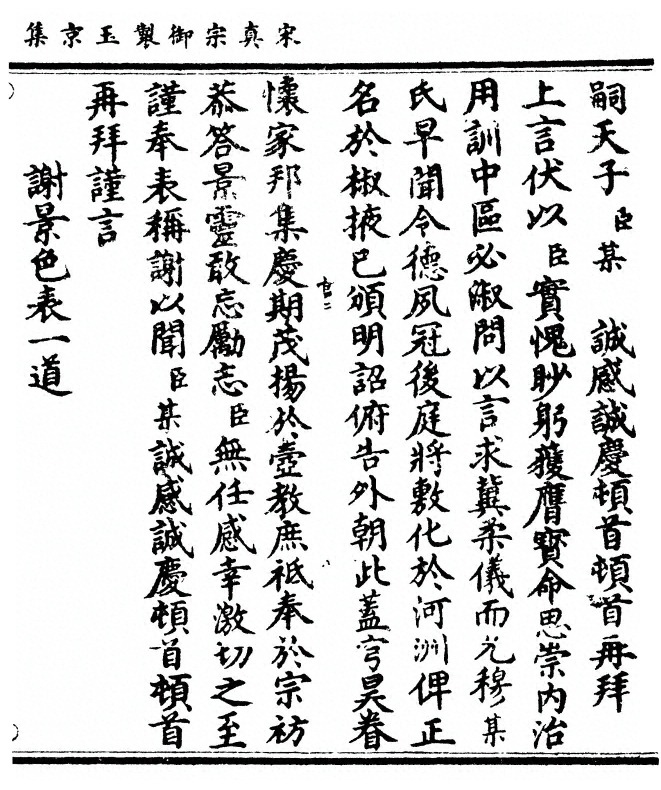 宋真宗御製玉京集
嗣天子臣某　誠感誠慶頓首頓首再拜
上言伏以臣實愧眇躬獲膺寶命思崇內治
用訓中區必淑問以言求冀柔儀而允穆某
氏早聞令德夙冠後庭將敷化於河洲俾正
名於椒掖已頒明詔俯告外朝此蓋穹昊眷
懷家邦集慶期茂揚於壼教庶祗奉於宗祊
官二
恭答景靈敢忘勵志臣無任感幸激切之至
謹奉表稱謝以聞臣某誠感誠慶頓首頓首
再拜謹言
謝景色表一道